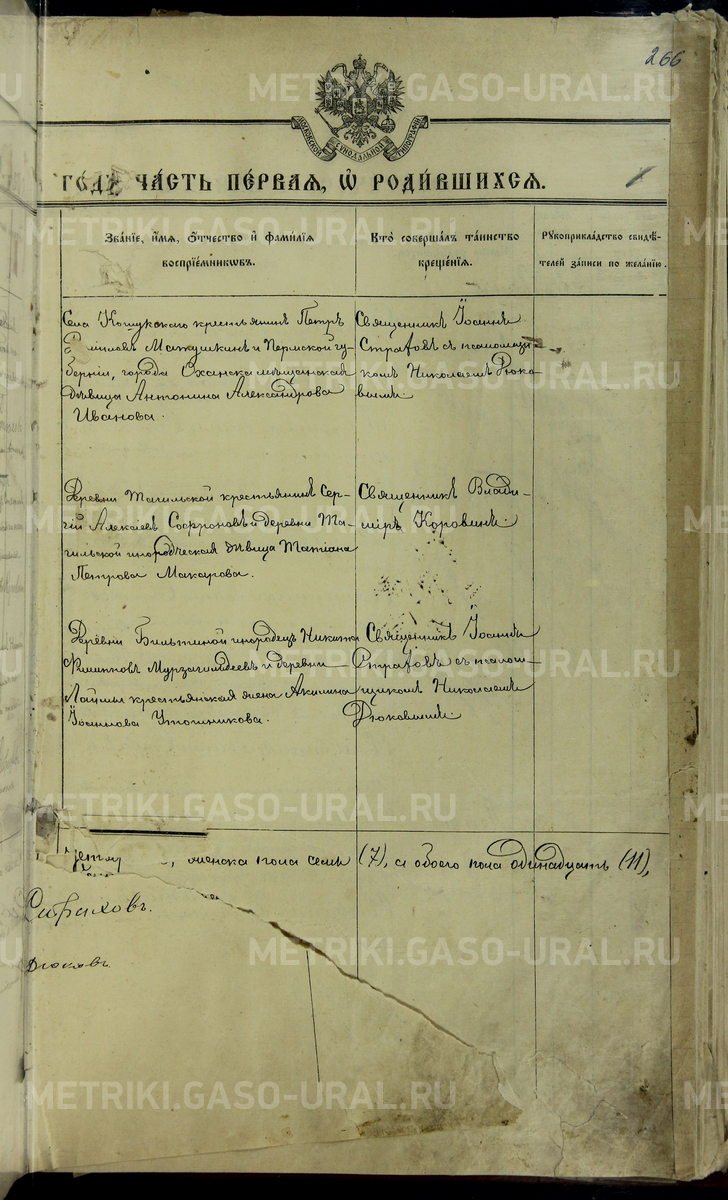 266
МОСКОВСКОЙ СѴНОДАЛЬНОЙ ТИПОГРАФІИ
ГОДꙊ ЧА́СТЬ ПЕ́РВАЯ, Ѡ҆ РОДИ́ВШИХСЯ.
Зва́ніе, и҆́мя, ѻ҆́тчество и҆ фами́лія
воспрїе́мникѡвъ.
Кто̀ соверша́лъ та́инство
креще́нїя.
Рꙋкоприкла́дство свидѣ́-
телей за́писи по жела́нїю.
Села Кошукскаго крестьянинъ Петръ
Матушкинъ и Пермской гу-
берніи, города Оханска мѣщанская
дѣвица Антонина Александрова
Иванова.
Священникъ Іоаннъ
Страховъ съ псаломщи-
комъ Николаемъ Дюко-
вымъ.
Деревни Тагильской крестьянинъ Сер-
гій Алексѣевъ Софроновъ и деревни Та-
гильской инородческая дѣвица Татіана
Петрова Макарова.
Священникъ Влади-
міръ Коровинъ.
Деревни инородецъ Никита
Филипповъ и деревни
крестьянская жена Акилина
Іоаннова Утошникова.
Священникъ Іоаннъ
Страховъ съ псалом-
щикомъ Николаемъ
Дюковымъ.
женска пола семь (7), а обоего пола одинадцать (11),
Страховъ.
Дюковъ.
METRIKI.GASO-URAL.RU